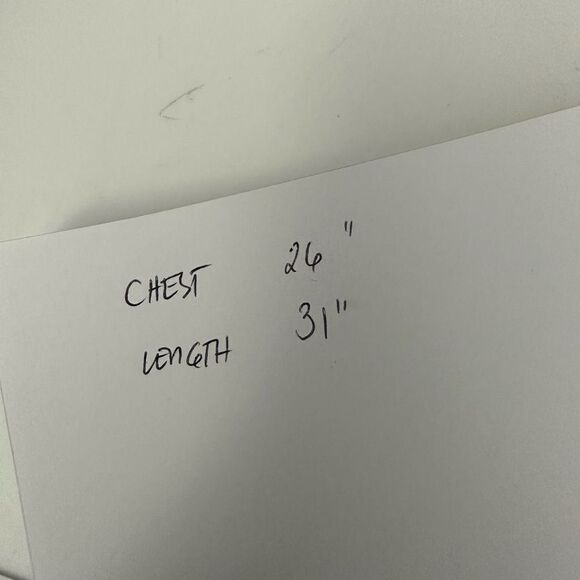 CHEST 26"
LENGTH 31"